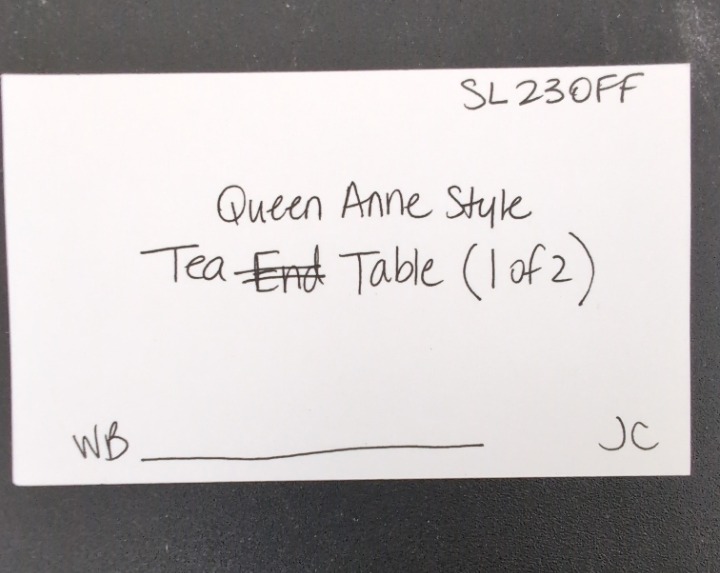 SL230FF
Queen Anne Style
Tea End Table (1 of 2)
WB
JC